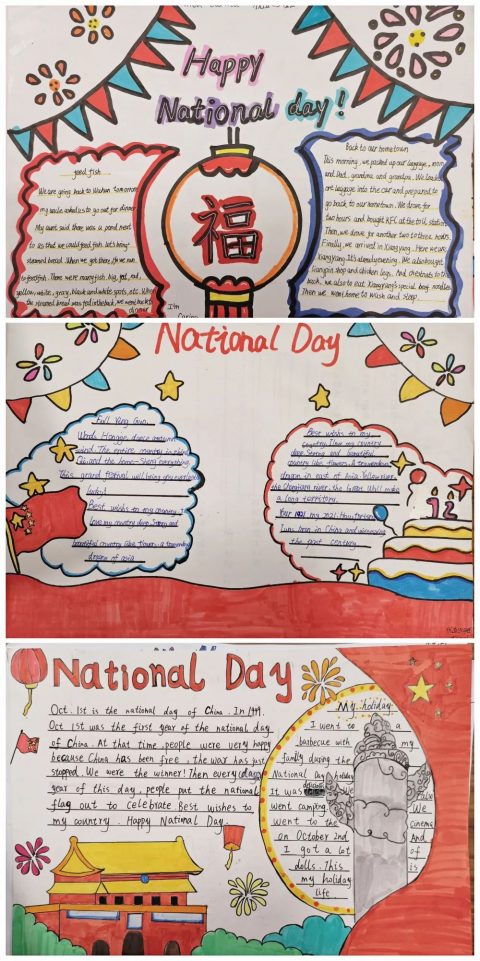 Happy
National day!
good fish
We are going back to Wuhan tomorrow
my uncle asked us to go out for dinner
My aunt said there was a pond next
to us that we could feed fish. Let's bring
steamed bread. When we got there, the we run
to feed fish. There were many fish, big, red,
yellow, white, gray, black and white spots, etc. When
the steamed bread was fed in the back, we went back to
dinner
I'm
福
Back to our hometown
This morning, we packed up our luggage, mom
and Dad, grandma and grandpa. We loaded
our luggage into the car and prepared to
go back to our hometown. We drove for
two hours and bought KFC at the toll station.
Then, we drove for another two to three hours.
Finally, we arrived in Xiangyang. Here we are
Xiangyang. It's already evening. We also bought
shop and chicken legs. And chestnuts to the
back. we also to eat Xiangyang's special beef noodles.
Then we went home to wash and sleep
National Day
wind. The entire country is
and the home
This grand festival
Best wishes to my country. I
love my country. Strong and
beautiful country like flower. a towering
dragon of asia
Best wishes to my
country. I love my country
Strong and beautiful
country like flowers. A tremendous
dragon in east of Asia. Yellow river.
the Changjiang river. the Great Wall make
a long territory.
Your 1921 my 2021.
I was born in China and witnessing
the past century
12
National Day
Oct. 1st is the national day of China. In 1949.
Oct 1st was the first year of the national day
of China. At that time, people were very happy
because China has been free. the war has just
stopped. We were the winner! Then every day
year of this day, people put the national
flag out to celebrate. Best wishes to
my country. Happy National Day.
My holiday
I went to a
barbecue with my
family during the
National Day holiday
It was delicious We
went camping We
went to the cinema
on October 2nd And
I got a lot of
dolls. This is
my holiday
life